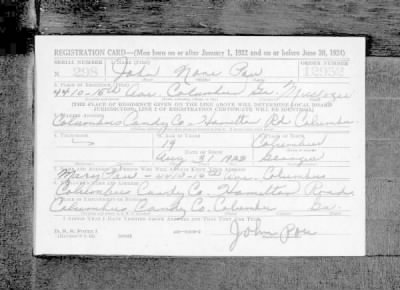 REGISTRATION CARD—(Men born on or after January 1, 1922 and on or before June 30, 1924)
SERIAL NUMBER 1. NAME (Print) ORDER NUMBER
N 298 John None Pou 12952
2. PLACE OF RESIDENCE (Print)
4410-15th Ave. Columbus Ga. Muscogee
[THE PLACE OF RESIDENCE GIVEN ON THE LINE ABOVE WILL DETERMINE LOCAL BOARD
JURISDICTION; LINE 2 OF REGISTRATION CERTIFICATE WILL BE IDENTICAL]
3. MAILING ADDRESS
Columbus Candy Co. Hamilton Rd. Columbus
4. TELEPHONE 5. AGE IN YEARS 6. PLACE OF BIRTH
19 Columbus
DATE OF BIRTH
Aug 31 1922 Georgia
7. NAME AND ADDRESS OF PERSON WHO WILL ALWAYS KNOW YOUR ADDRESS
Mary Pou - 4410-15th Ave. Columbus
8. EMPLOYER'S NAME AND ADDRESS
Columbus Candy Co. Hamilton Road
9. PLACE OF EMPLOYMENT OR BUSINESS
Columbus Candy Co. Columbus Ga.
I AFFIRM THAT I HAVE VERIFIED ABOVE ANSWERS AND THAT THEY ARE TRUE.
D. S. S. Form 1
John Pou